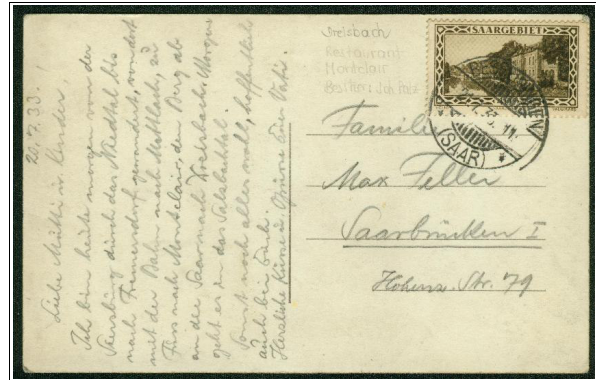 20.7.33.
Liebe Mutti u. Kinder!
Ich bin heute morgen von der
durch das Niedtal bis
nach gewandert, von dort
mit der Bahn nach Mettlach, zu
Fuss nach Montclair, den Berg ab
an die Saar nach Dreisbach. Morgen
geht es in das
Sonst noch alles wohl, hoffentlich
auch bei Euch.
Herzliche Küsse u. Grüsse Euer Vati.
Dreisbach
Restaurant
Montclair
Besitzer: Joh.
SAARGEBIET
(SAAR)
Familie
Max Feller
Saarbrücken I
Hohenz. Str. 79